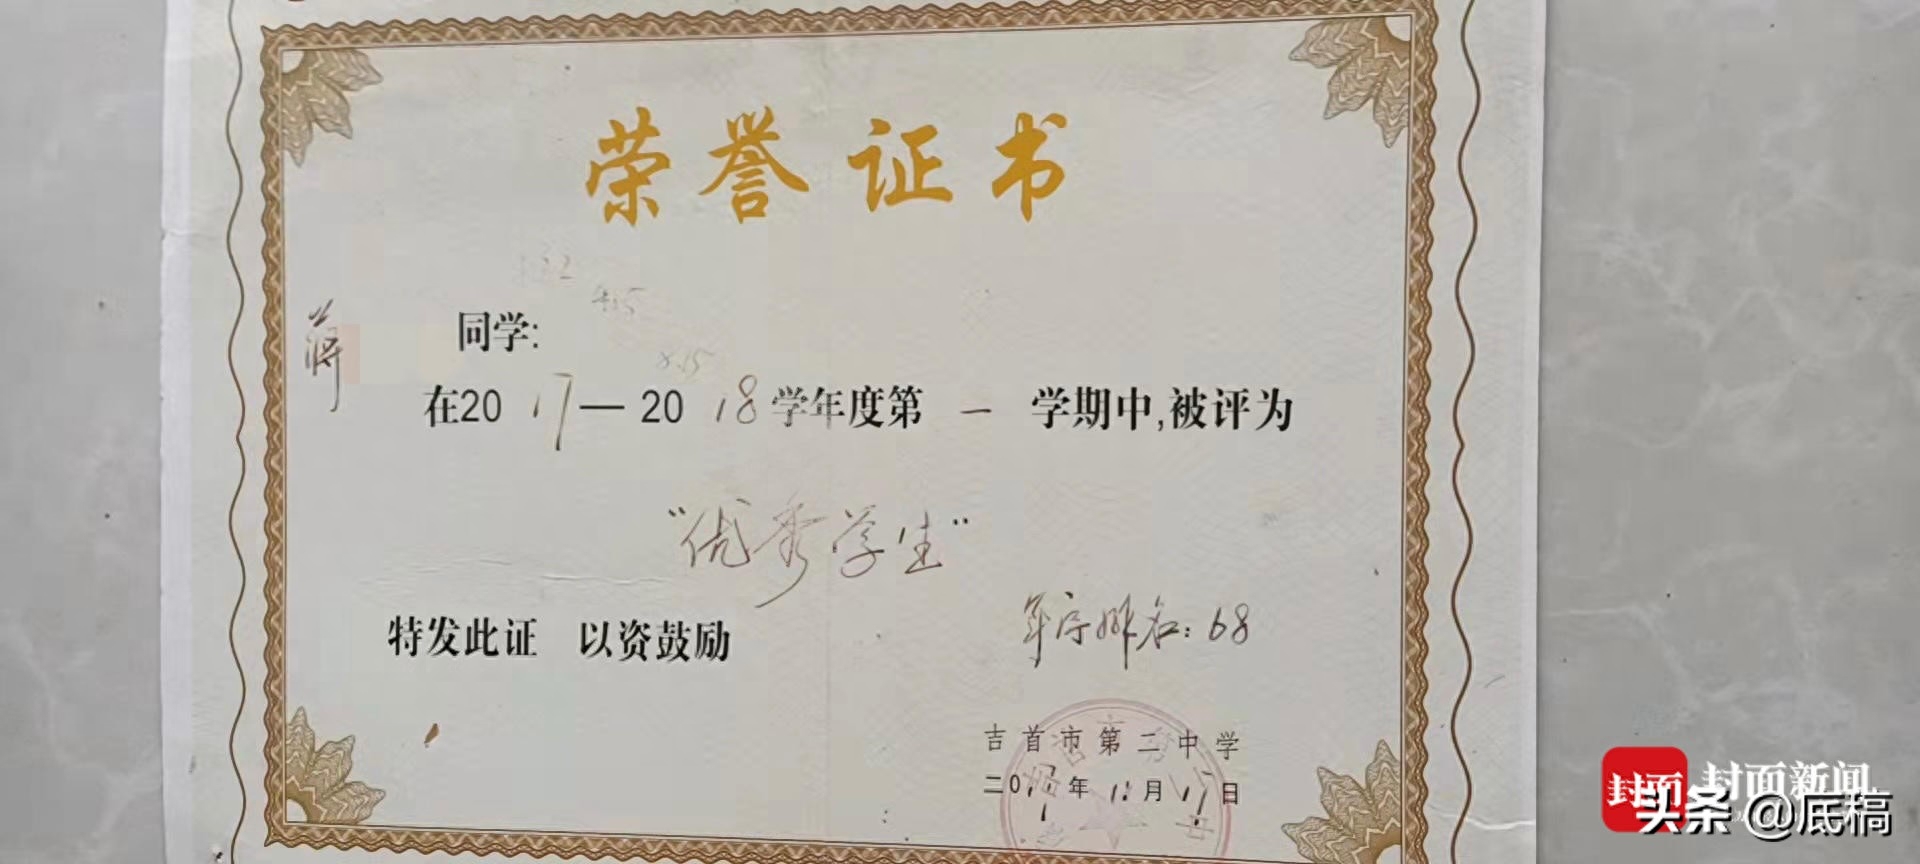 荣誉证书
蒋 同学:
在2017—2018学年度第一学期中,被评为
“优秀学生”
特发此证 以资鼓励
年序排名:68
吉首市第二中学
二0 年 月 日
封面 封面新闻
头条 @底稿